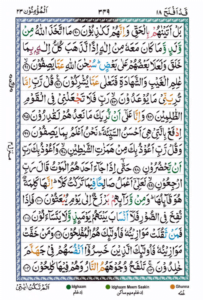 قد افلح ١٨ ٣٣٩ المؤمنون ٢٣
بَلْ اَتَيْنٰهُمْ بِالْحَقِّ وَاِنَّهُمْ لَكٰذِبُوْنَ مَا اتَّخَذَ اللّٰهُ مِنْ
وَّلَدٍ وَّمَا كَانَ مَعَهٗ مِنْ اِلٰهٍ اِذًا لَّذَهَبَ كُلُّ اِلٰهٍۭ بِمَا
خَلَقَ وَلَعَلَا بَعْضُهُمْ عَلٰى بَعْضٍ سُبْحٰنَ اللّٰهِ عَمَّا يَصِفُوْنَ
عٰلِمِ الْغَيْبِ وَالشَّهَادَةِ فَتَعٰلٰى عَمَّا يُشْرِكُوْنَ قُلْ رَّبِّ اِمَّا
تُرِيَنِّيْ مَا يُوْعَدُوْنَ رَبِّ فَلَا تَجْعَلْنِيْ فِي الْقَوْمِ
الظّٰلِمِيْنَ وَاِنَّا عَلٰٓى اَنْ نُّرِيَكَ مَا نَعِدُهُمْ لَقٰدِرُوْنَ
اِدْفَعْ بِالَّتِيْ هِيَ اَحْسَنُ السَّيِّئَةَ نَحْنُ اَعْلَمُ بِمَا يَصِفُوْنَ
وَقُلْ رَّبِّ اَعُوْذُ بِكَ مِنْ هَمَزٰتِ الشَّيٰطِيْنِ وَاَعُوْذُ بِكَ رَبِّ
اَنْ يَّحْضُرُوْنِ حَتّٰٓى اِذَا جَآءَ اَحَدَهُمُ الْمَوْتُ قَالَ رَبِّ
ارْجِعُوْنِ لَعَلِّيْٓ اَعْمَلُ صَالِحًا فِيْمَا تَرَكْتُ كَلَّا اِنَّهَا كَلِمَةٌ
هُوَ قَآئِلُهَا وَمِنْ وَّرَآئِهِمْ بَرْزَخٌ اِلٰى يَوْمِ يُبْعَثُوْنَ فَاِذَا
نُفِخَ فِي الصُّوْرِ فَلَآ اَنْسَابَ بَيْنَهُمْ يَوْمَئِذٍ وَّلَا يَتَسَآءَلُوْنَ
فَمَنْ ثَقُلَتْ مَوَازِيْنُهٗ فَاُولٰٓئِكَ هُمُ الْمُفْلِحُوْنَ وَمَنْ خَفَّتْ
مَوَازِيْنُهٗ فَاُولٰٓئِكَ الَّذِيْنَ خَسِرُوْٓا اَنْفُسَهُمْ فِيْ جَهَنَّمَ
خٰلِدُوْنَ تَلْفَحُ وُجُوْهَهُمُ النَّارُ وَهُمْ فِيْهَا كٰلِحُوْنَ
Idghaam Idghaam Meem Saakin Ghunna